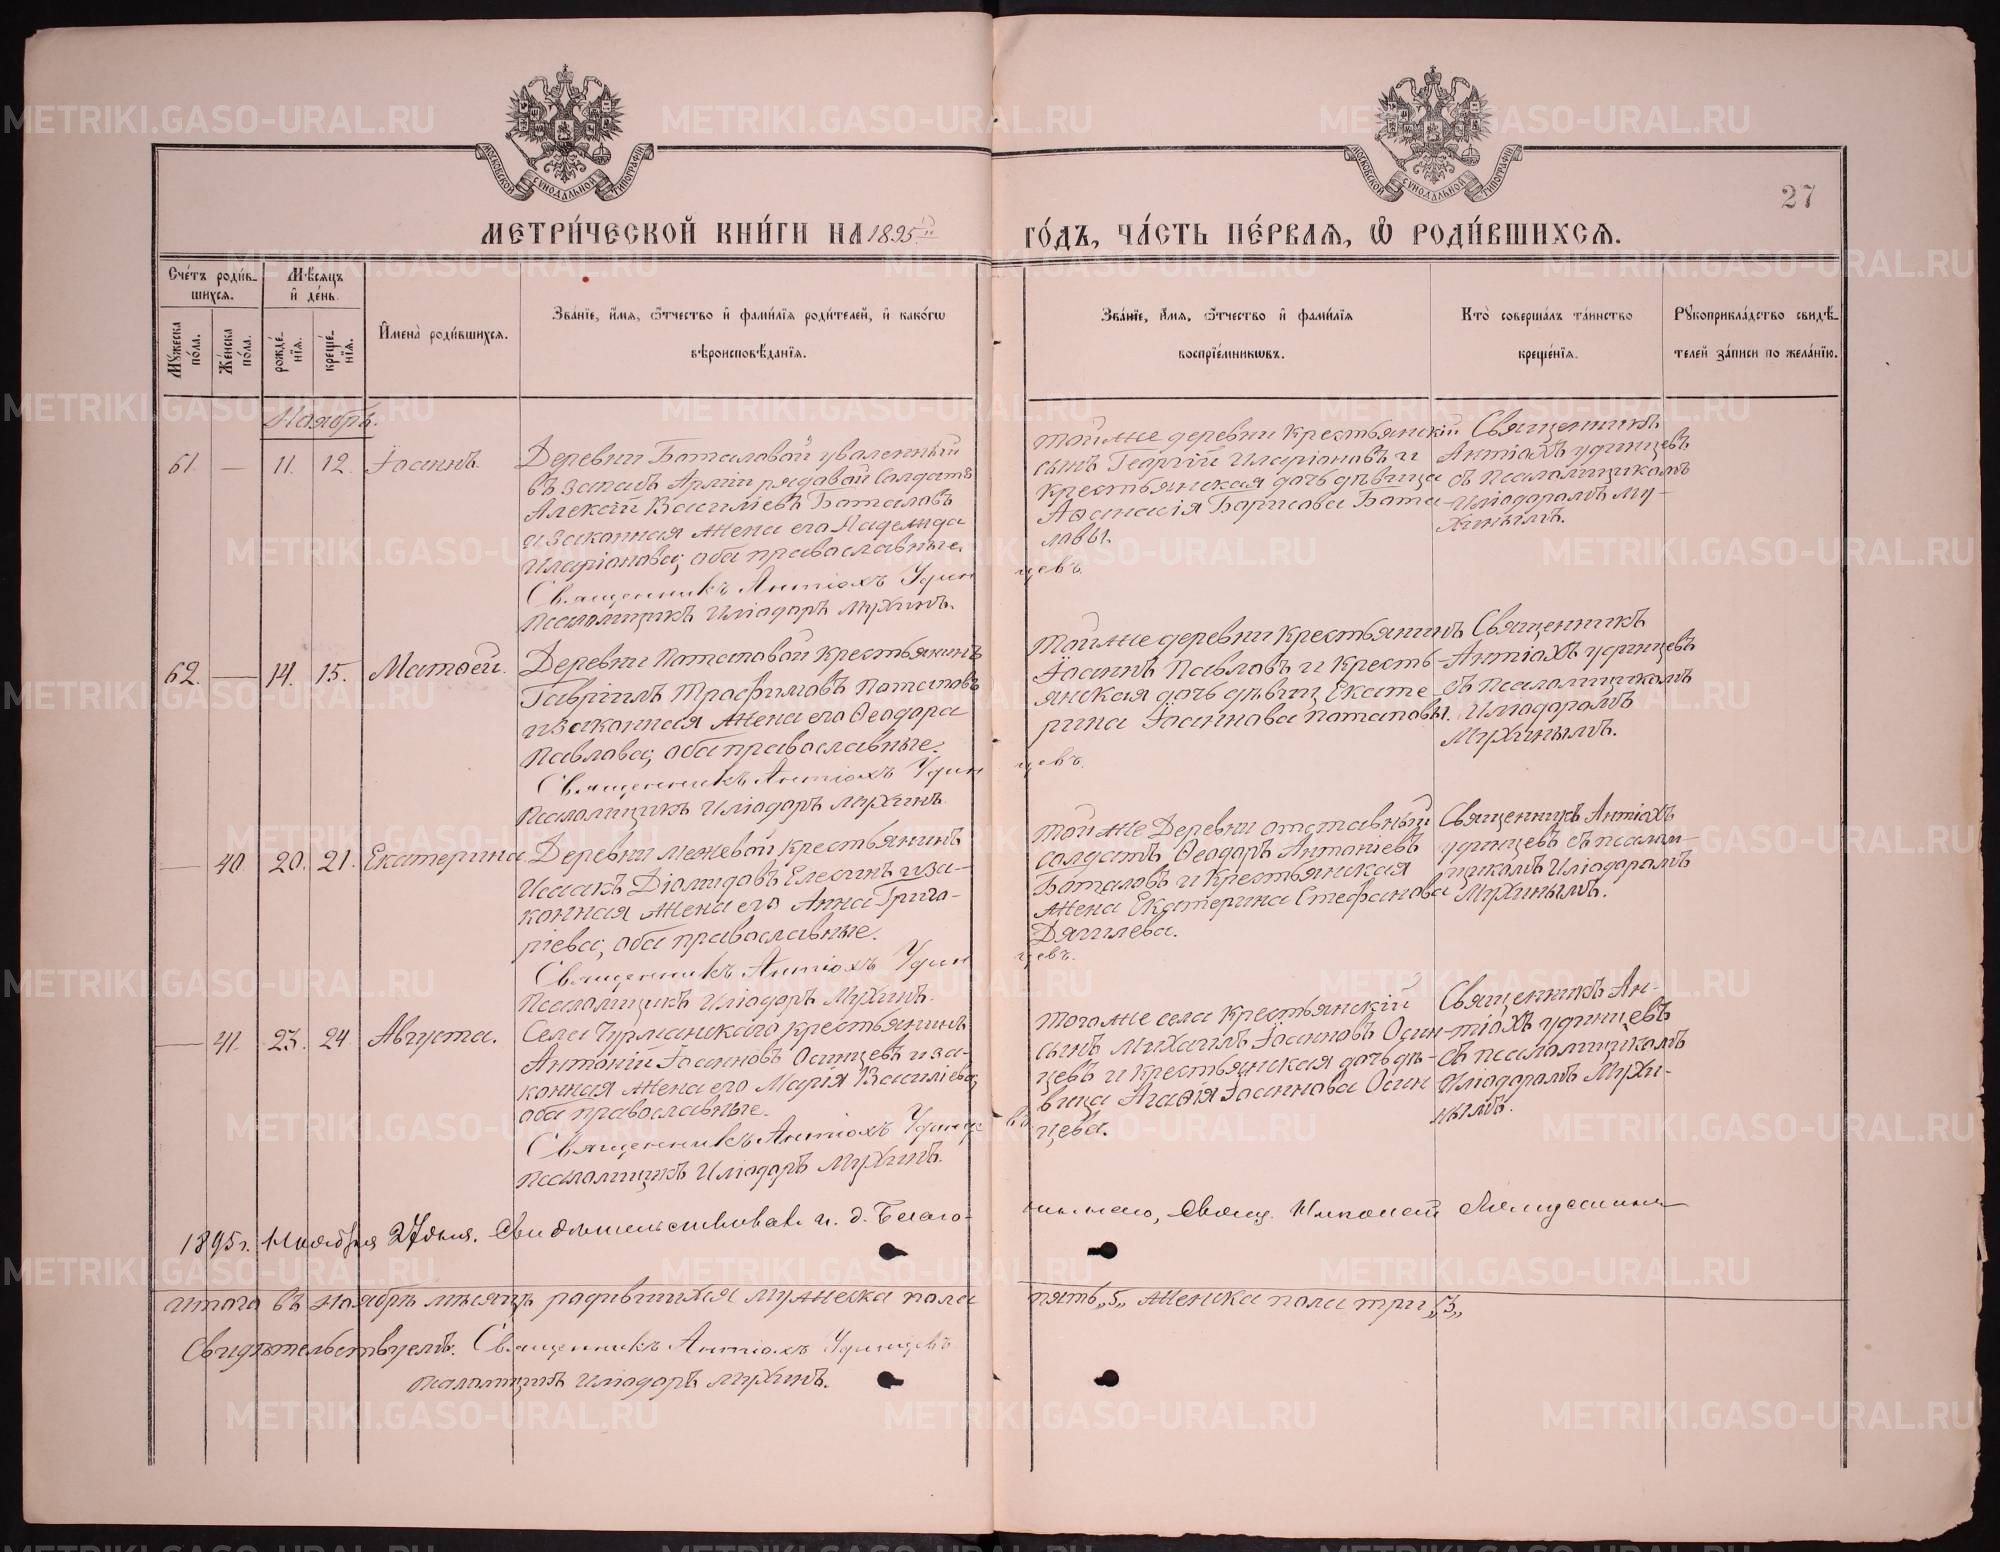 27
МЕТРИ́ЧЕСКОЙ КНИ́ГИ НА 1895 й ГО́ДЪ, ЧА́СТЬ ПЕ́РВАЯ, Ѿ РОДИ́ВШИХСЯ.
МОСКОВСКОЙ СУНОДАЛЬНОЙ ТИПОГРАФІИ
МОСКОВСКОЙ СУНОДАЛЬНОЙ ТИПОГРАФІИ
Сче́тъ роди́в-
шихся.
Мѣсяцъ
и де́нь.
Мꙋ́жеска
по́ла.
Же́нска
по́ла.
рожде́-
нія.
креще́-
нія.
И́мена̀ роди́вшихся.
Зва́ніе, и́мя, ѻ́тчество и фами́лія роди́телей, и како́гѡ
вѣроисповѣ́данія.
Зва́ніе, и́мя, ѻ́тчество и фами́лія
воспріе́мникѡвъ.
Кто̀ соверша́лъ та́инство
креще́нія.
Рꙋкоприкла́дство свидѣ́-
телей за́писи по жела́нію.
Ноябрь.
61. — 11. 12. Іоаннъ.
Деревни Боталовой уволенный
въ запасъ Арміи рядовой солдатъ
Алексій Василіевъ Боталовъ
и законная жена его Надежда
Иларіонова; оба православные.
Священникъ Антіохъ Удин
цевъ.
Псаломщикъ Иліодоръ Мухинъ.
тойже деревни крестьянскій
сынъ Георгій Иларіоновъ и
крестьянская дочь дѣвица
Аѳанасія Борисова Бота-
ловы.
Священникъ
Антіохъ Удинцевъ
съ псаломщикомъ
Иліодоромъ Му-
хинымъ.
62. — 14. 15. Матѳей.
Деревни Потаповой крестьянинъ
Гавріилъ Трофимовъ Потаповъ
и законная жена его Ѳеодора
Павлова; оба православные.
Священникъ Антіохъ Удин
цевъ.
Псаломщикъ Иліодоръ Мухинъ.
тойже деревни крестьянинъ
Іоаннъ Павловъ и кресть-
янская дочь дѣвиц Екате-
рина Іоаннова Потаповы.
Священникъ
Антіохъ Удинцевъ
съ псаломщикомъ
Иліодоромъ
Мухинымъ.
— 40 20. 21. Екатерина
Деревни Межевой крестьянинъ
Исаакъ Діомидовъ Елесинъ и за-
конная жена его Анна Григо-
ріева; оба православные.
Священникъ Антіохъ Удин
цевъ.
Псаломщикъ Иліодоръ Мухинъ.
тойже Деревни отставный
солдатъ Ѳеодоръ Антоніевъ
Боталовъ и крестьянская
жена Екатерина Стефанова
Дягилева.
Священникъ Антіохъ
Удинцевъ съ псалом-
щикомъ Иліодоромъ
Мухинымъ.
— 41. 23. 24. Августа.
Села Чурманскаго крестьянинъ
Антоній Іоанновъ Осинцевъ и за-
конная жена его Марія Василіева;
оба православные.
Священникъ Антіохъ Удинце
въ
Псаломщикъ Иліодоръ Мухинъ.
тогоже села крестьянскій
сынъ Михаилъ Іоанновъ Осин-
цевъ и крестьянская дочь дѣ-
вица Агаѳія Іоаннова Осин
цева.
Священникъ Ан-
тіохъ Удинцевъ
съ псаломщикомъ
Иліодоромъ Мухи-
нымъ.
1895 г. Ноября 27 дня. Свидѣтельствовалъ и. д. Благо-
чиннаго, Свящ. Николай
Итого въ ноябрѣ мѣсяцѣ родившихся мужеска пола
пять „5„ женска пола три „3„
Свидѣтельствуемъ: Священникъ Антіохъ Удинцевъ
Псаломщикъ Иліодоръ Мухинъ.
METRIKI.GASO-URAL.RU